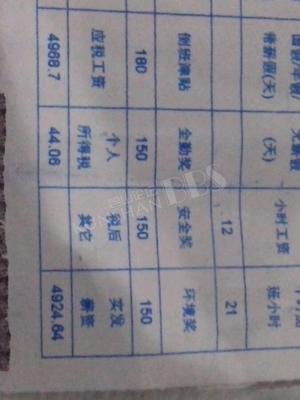 带薪假(天) (天) 小时工资 班小时
12 21
倒班津贴 全勤奖 安全奖 环境奖
180 150 150 150
应税工资 个人 税后 实发
所得税 其它 薪资
4968.7 44.08 4924.64